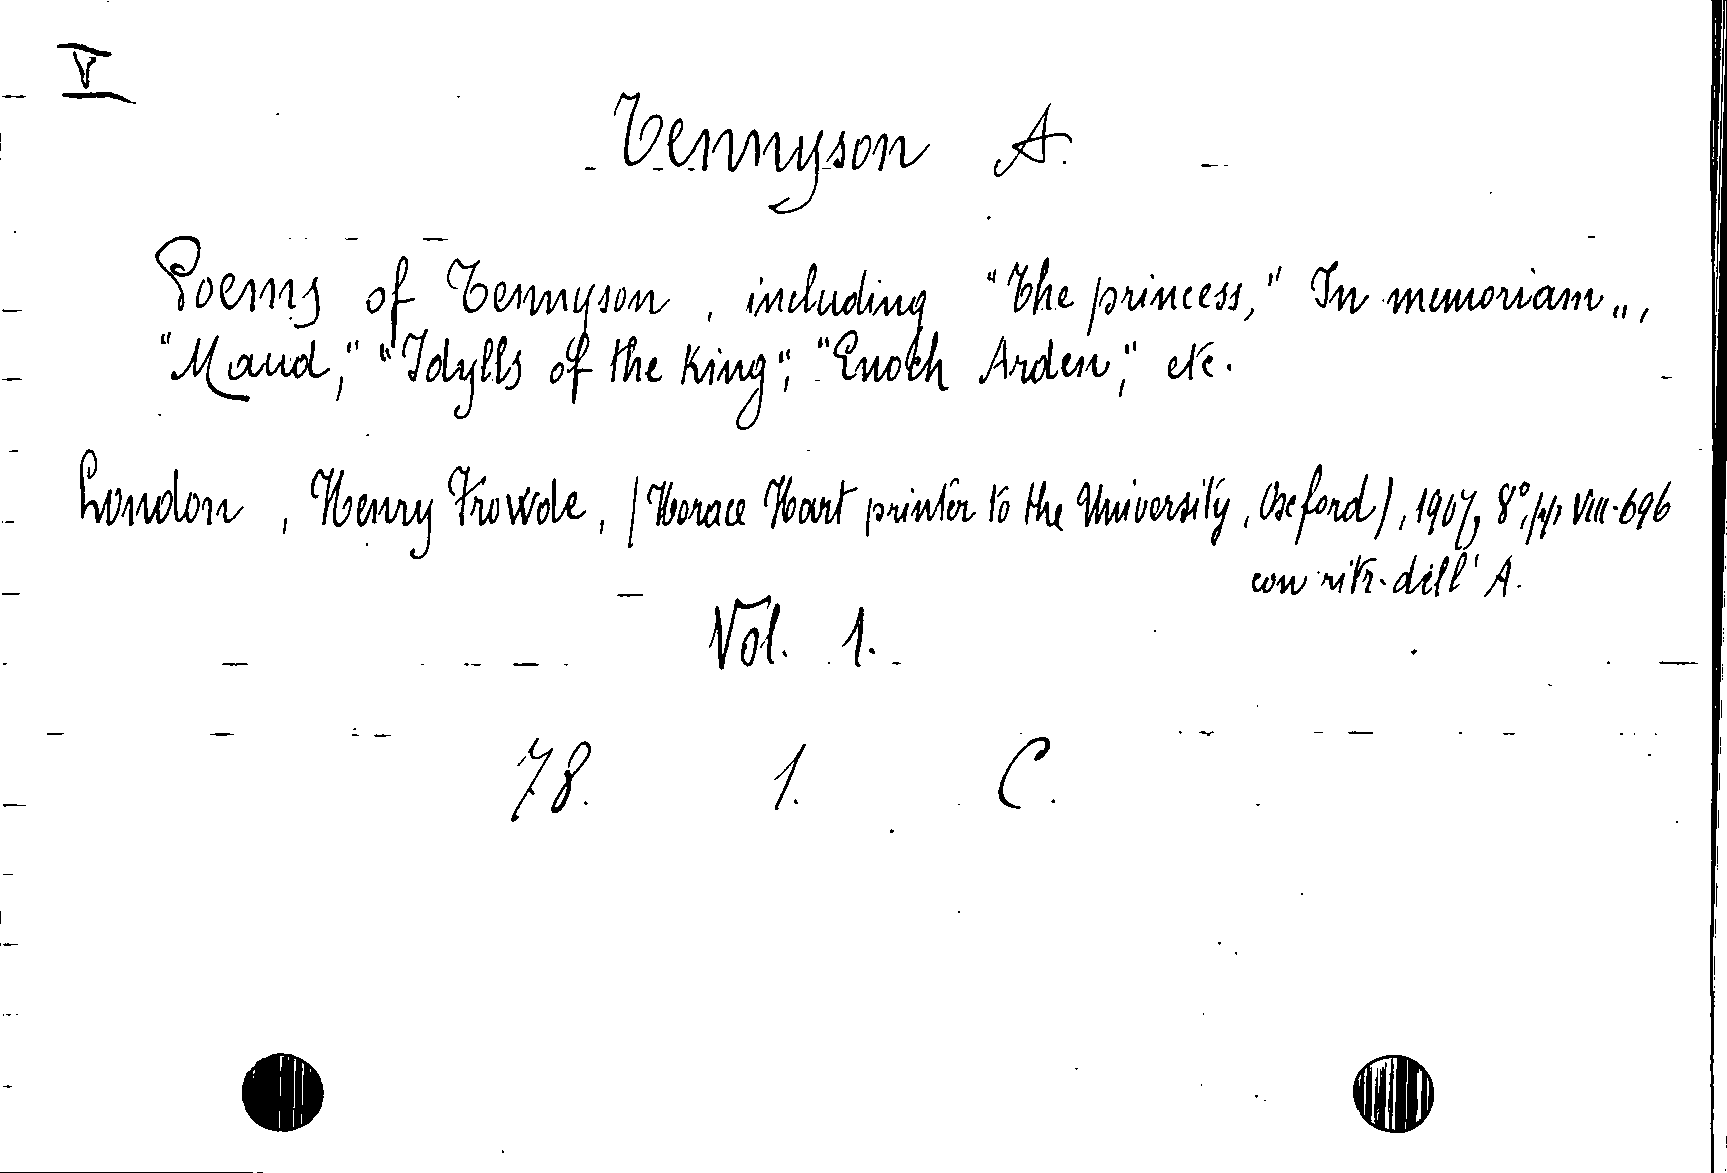 V
Tennyson A.
Poems of Tennyson, including "The princess," In memoriam „,
"Maud," "Idylls of the King", "Enoch Arden", etc.
London, Henry Frowde, (Horace Hart printer to the University, Oxford), 1907, 8°, pp VIII-696
con ritr. dell' A.
Vol. 1.
78. 1. C.